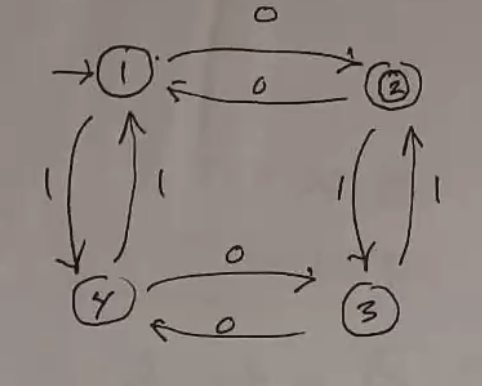 0
1 2
0
1 1 1 1
0
4 3
0